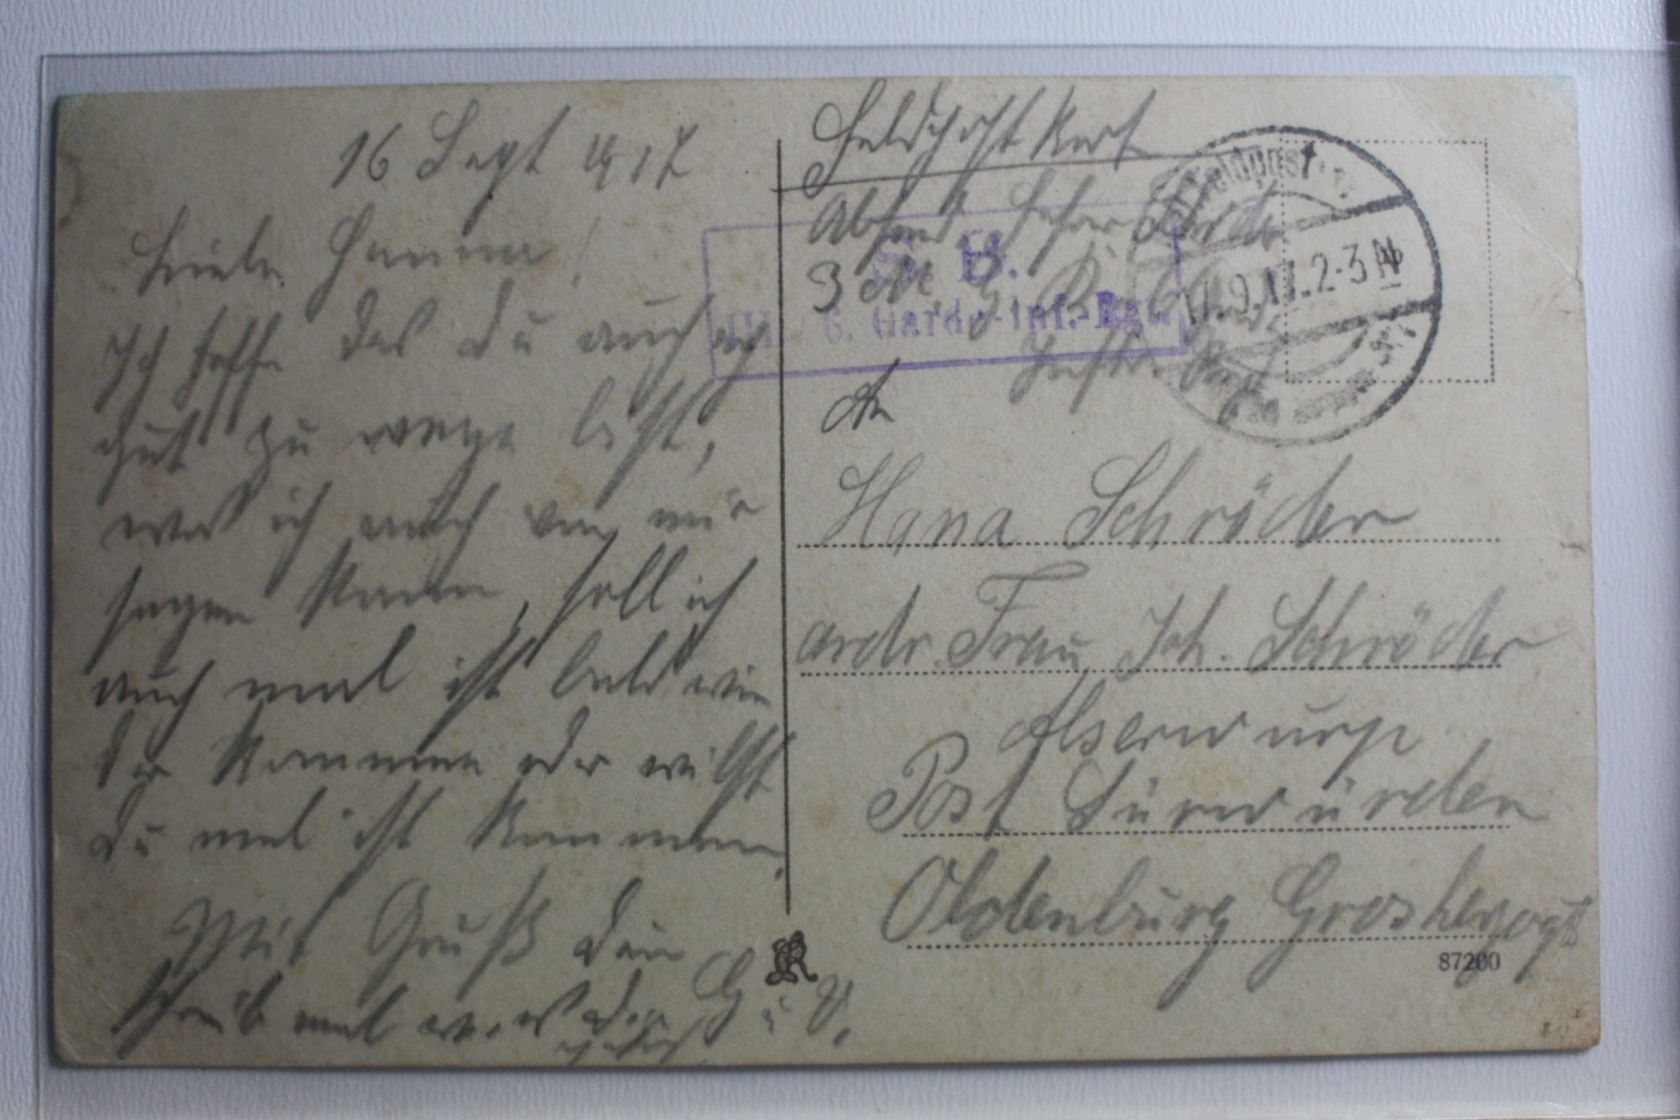 16 Sept 1917
Liebe Hanna!
Ich hoffe das du auch noch
gut zu wege bist,
was ich auch von mir
sagen kann, soll ich
auch mal ist bald wie
der kommen oder willst
du mal ist kommen.
Mit Gruß dein
schreib mal was die
G u V.
Feldpost Kart
Absend.
S. B.
III / 6. Garde-Inf.-Rgt.
Feldpost
9.17. 2-3 N
An
Hana Schröder
adr. Frau Joh. Schröder
Alserwurp
Post Dürwürden
Oldenburg Grosherzogt
87200